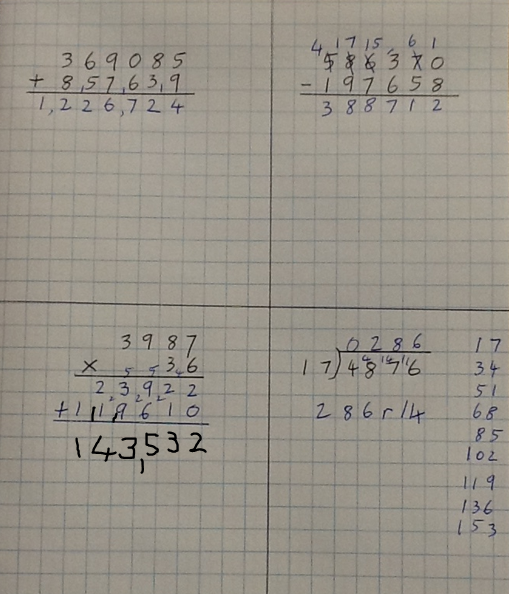 369085
+ 857639
1,226,724
4 17 15 6 1
586370
- 197658
388712
3987
× 36
23922
+ 119610
143,532
0286
17)4876
286r14
17
34
51
68
85
102
119
136
153